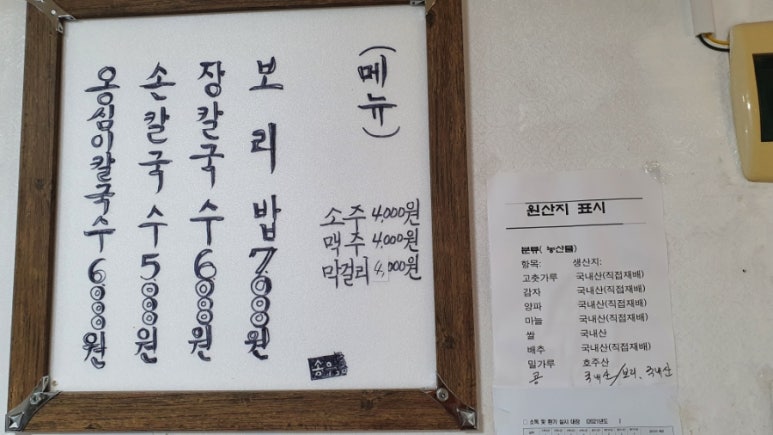 (메뉴)
보리밥 7,000원
장칼국수 6,000원
손칼국수 5,000원
옹심이칼국수 6,000원
소주 4,000원
맥주 4,000원
막걸리 4,000원
원산지 표시
분류( 농산물)
항목: 생산지:
고춧가루 국내산(직접재배)
감자 국내산(직접재배)
양파 국내산(직접재배)
마늘 국내산(직접재배)
쌀 국내산
배추 국내산(직접재배)
밀가루 호주산
콩 국내산/보리. 국내산
○ 소독 및 환기 실시 대장 (2021년도 )